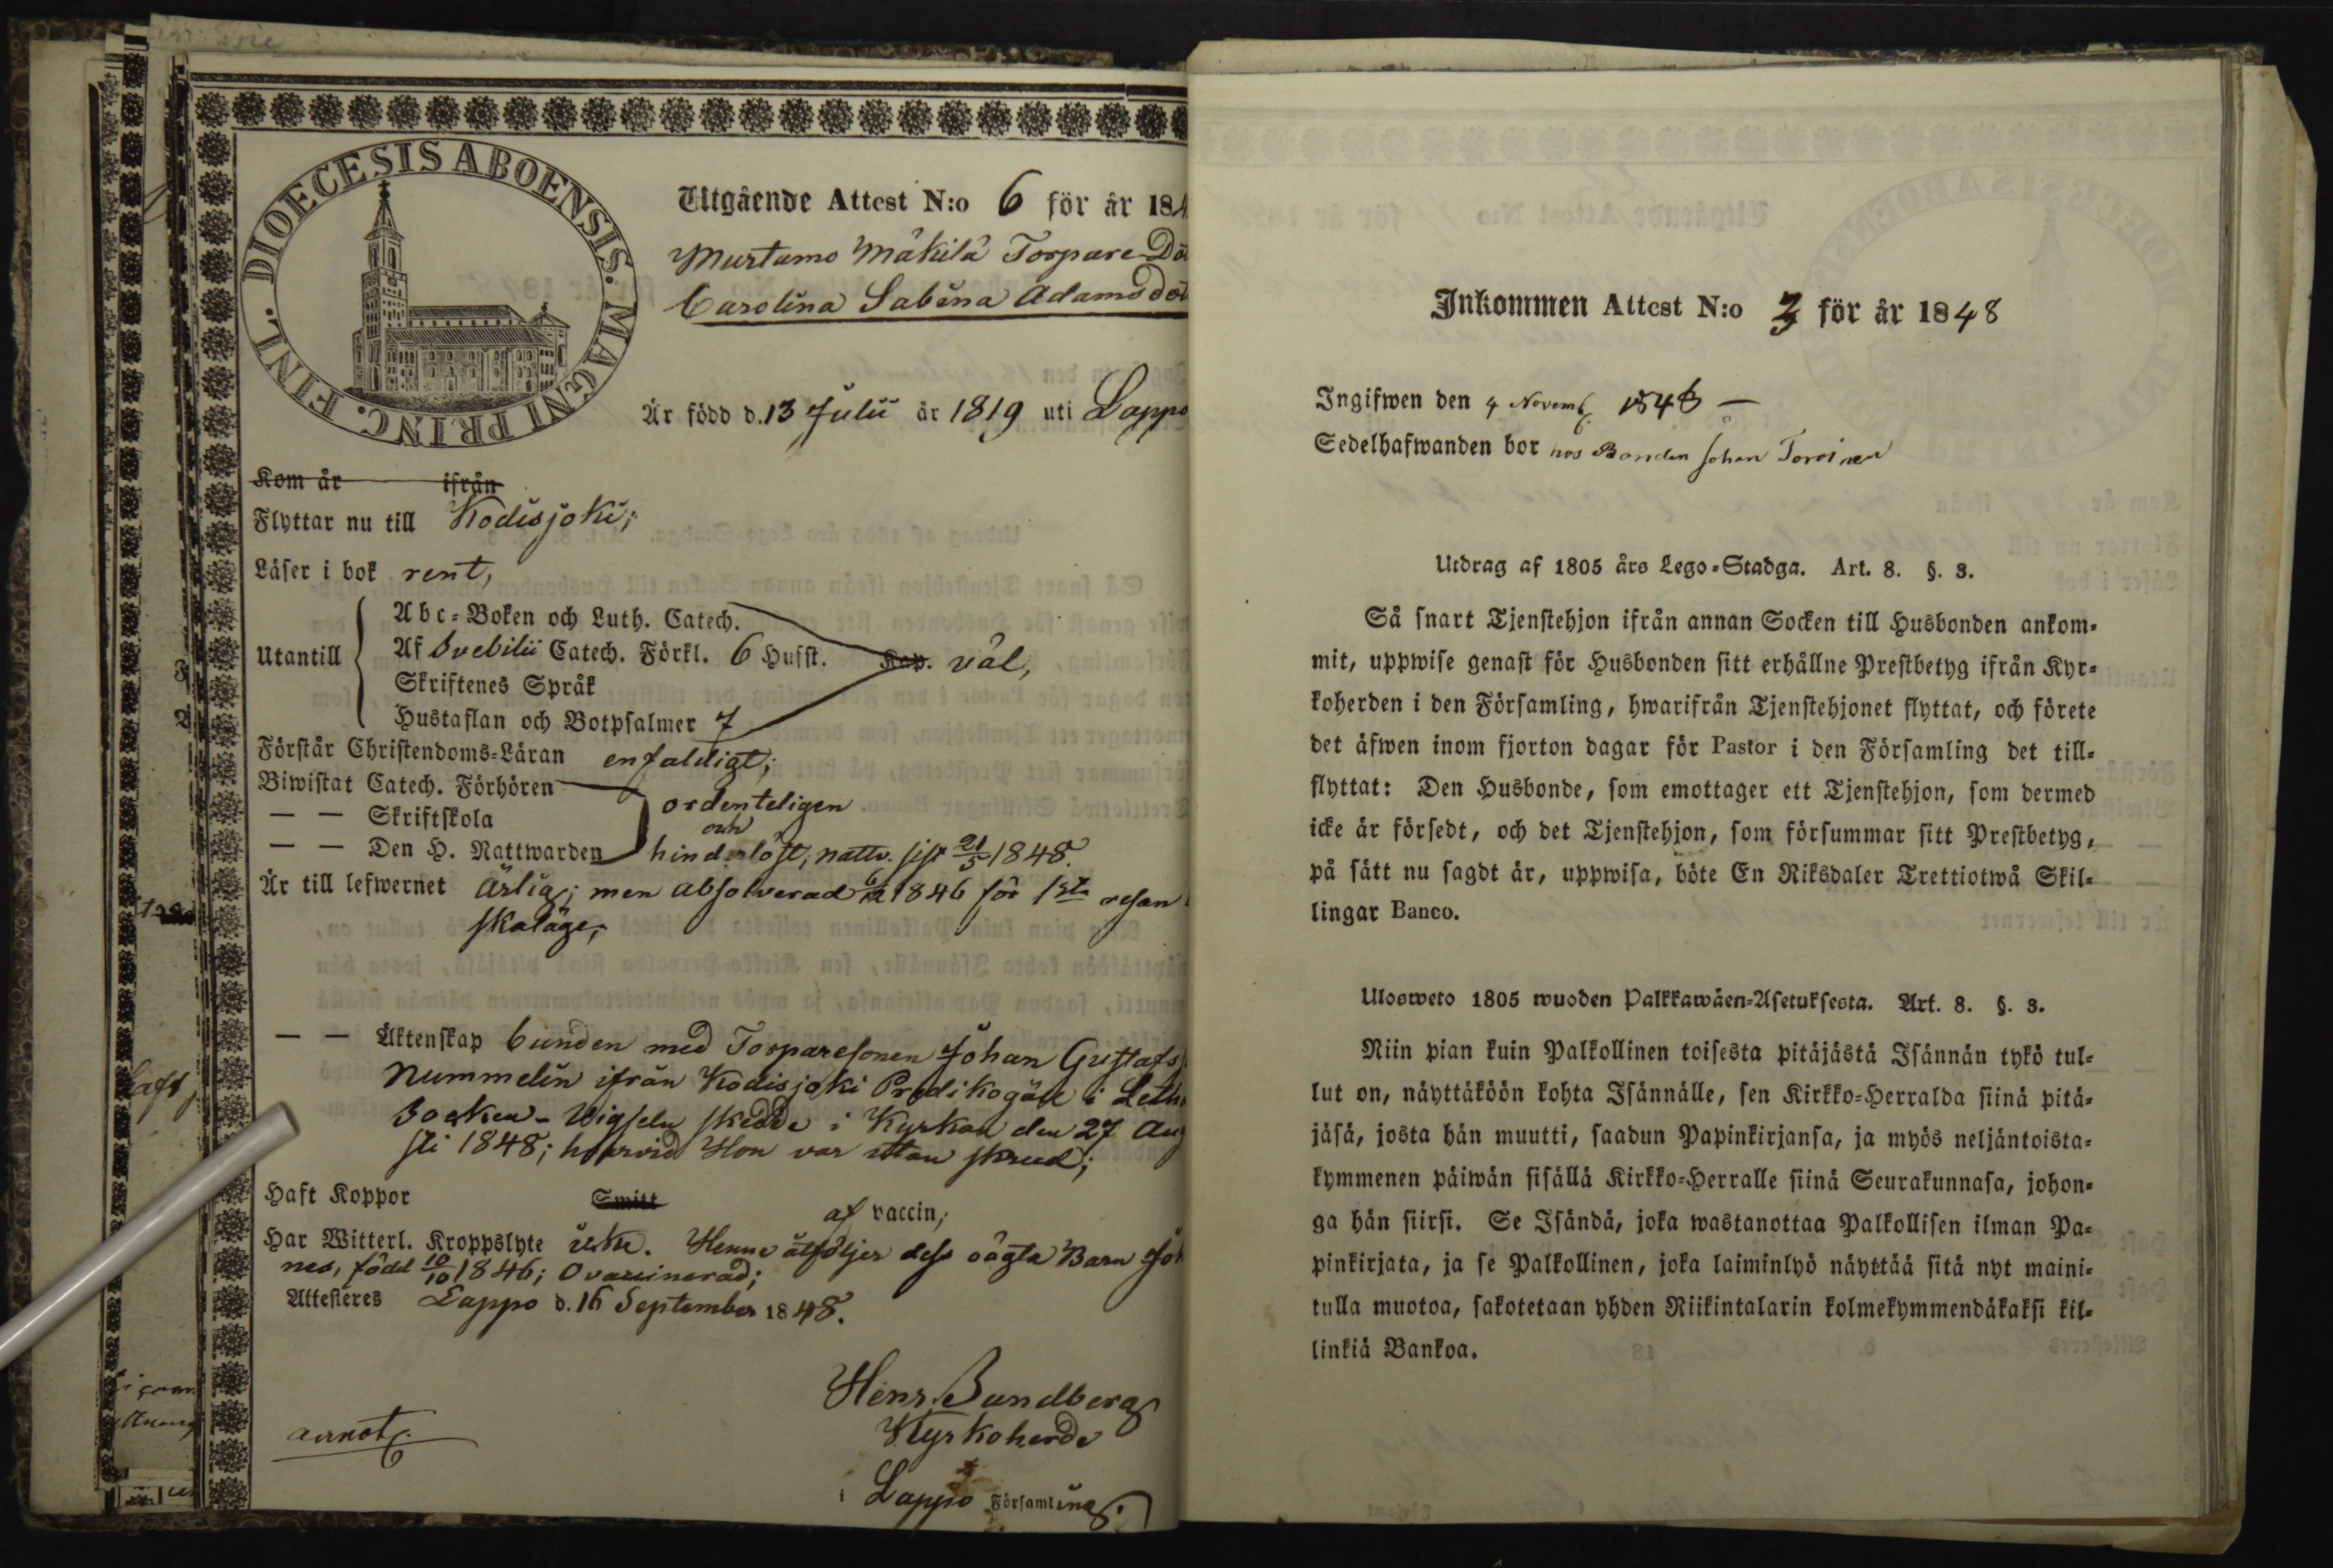 DIOECESIS ABOENSIS. MAGNI PRINC. FINL.
Utgående Attest N:o 6 för år 184
Murtamo Mäkilä Torpare Do
Carolina Sabina Adamsdot
Är född d. 13 Julii år 1819 uti Lappo
Kom år ifrån
Flyttar nu till Kodisjoki;
Läser i bok rent,
Utantill
Abc-Boken och Luth. Catech.
Af Svebilii Catech. Förkl. 6 Hufst. Kap. väl,
Skriftenes Språk
Hustaflan och Botpsalmer 7
Förstår Christendoms-Läran enfaldigt;
Biwistat Catech. Förhören
— — Skriftskola ordenteligen
och
— — Den H. Nattwarden hinderlöst, nattv. sist 21/5 1848.
Är till lefwernet ärlig; men absolverad 1846 för 1sta resan
skaläge,
— — Äktenskap bunden med Torparesonen Johan Gustafs
Nummelin ifrån Kodisjoki Predikogäll i Leth
Socken - Wigseln skedde i Kyrkan den 27 Aug
sti 1848; hvarvid Hon var utan skrud;
Haft Koppor Smitt af vaccin;
Har Witterl. Kroppslyte icke. Henne åtföljer dess oägta Barn Joh
nes, född 10/10 1846; Ovaccinerad;
Attesteras Lappo d. 16 September 1848.
Henr. Sundberg
Kyrkoherde
i Lappo Församling.
annot.
Inkommen Attest N:o 3 för år 1848
Ingifwen den 4 Novemb. 1848 —
Sedelhafwanden bor hos Bonden Johan Toroinen
Utdrag af 1805 års Lego-Stadga. Art. 8. §. 3.
Så snart Tjenstehjon ifrån annan Socken till Husbonden ankom-
mit, uppwise genast för Husbonden sitt erhållne Prestbetyg ifrån Kyr-
koherden i den Församling, hwarifrån Tjenstehjonet flyttat, och förete
det äfwen inom fjorton dagar för Pastor i den Församling det till-
flyttat: Den Husbonde, som emottager ett Tjenstehjon, som dermed
icke är försedt, och det Tjenstehjon, som försummar sitt Prestbetyg,
på sätt nu sagdt är, uppwisa, böte En Riksdaler Trettiotwå Skil-
lingar Banco.
Ulosweto 1805 wuoden Palkkawäen-Asetuksesta. Art. 8. §. 3.
Niin pian kuin Palkollinen toisesta pitäjästä Isännän tykö tul-
lut on, näyttäköön kohta Isännälle, sen Kirkko-Herralda siinä pitä-
jäsä, josta hän muutti, saadun Papinkirjansa, ja myös neljäntoista-
kymmenen päiwän sisällä Kirkko-Herralle siinä Seurakunnasa, johon-
ga hän siirsi. Se Isändä, joka wastanottaa Palkollisen ilman Pa-
pinkirjata, ja se Palkollinen, joka laiminlyö näyttää sitä nyt maini-
tulla muotoa, sakotetaan yhden Riikintalarin kolmekymmendäkaksi kil-
linkiä Bankoa.